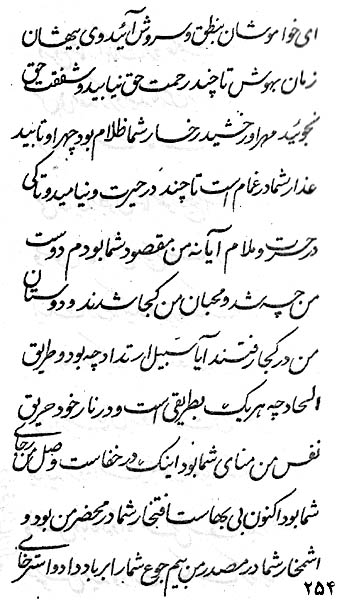 ای خاموشان بنطق و سروش آئید و ی بیهشان
زمان بهوش تا چند رحمت حق نیابید و شفقت حق
نجوئید مهر اور خشید رخسار شما ظلام بود چهر او تابید
عذار شما در غمام است تا چند در حیرت و نیامید و تا کی
در حسرت و ملام آیا نه من مقصود شما بودم دوست
من چه شد و محبان من کجا شدند و دوستان
من در کجا رفتند آیا سبیل ارتداد چه بود و طریق
الحاد چه هر یک بطریقی است و در نار خود حریق
نفس من منای شما بود اینک در خفاست وصل من رجای
شما بود اکنون بی بهاست افتخار شما در محضر من بود و
اشمخار شما در مصدر من بیم جوع شما را بر باد داد و استرخای
۲۵۴